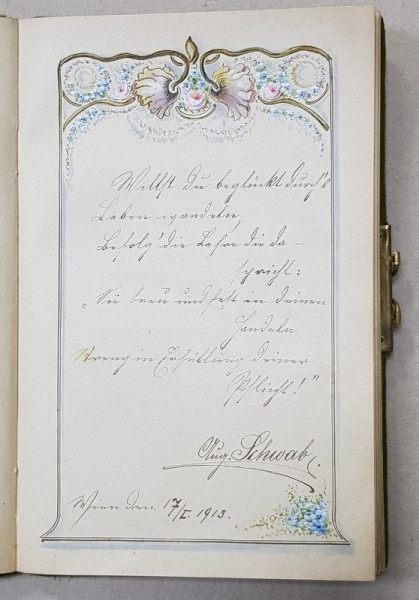 Willst du beglückt durch's
Leben wandeln,
Befolg' die Lehre die da –
spricht:
„Sei treu und fest in deinen
Handeln,
Streng in Erfüllung deiner
Pflicht!"
Aug. Schwab.
Wien den 17/I. 1913.